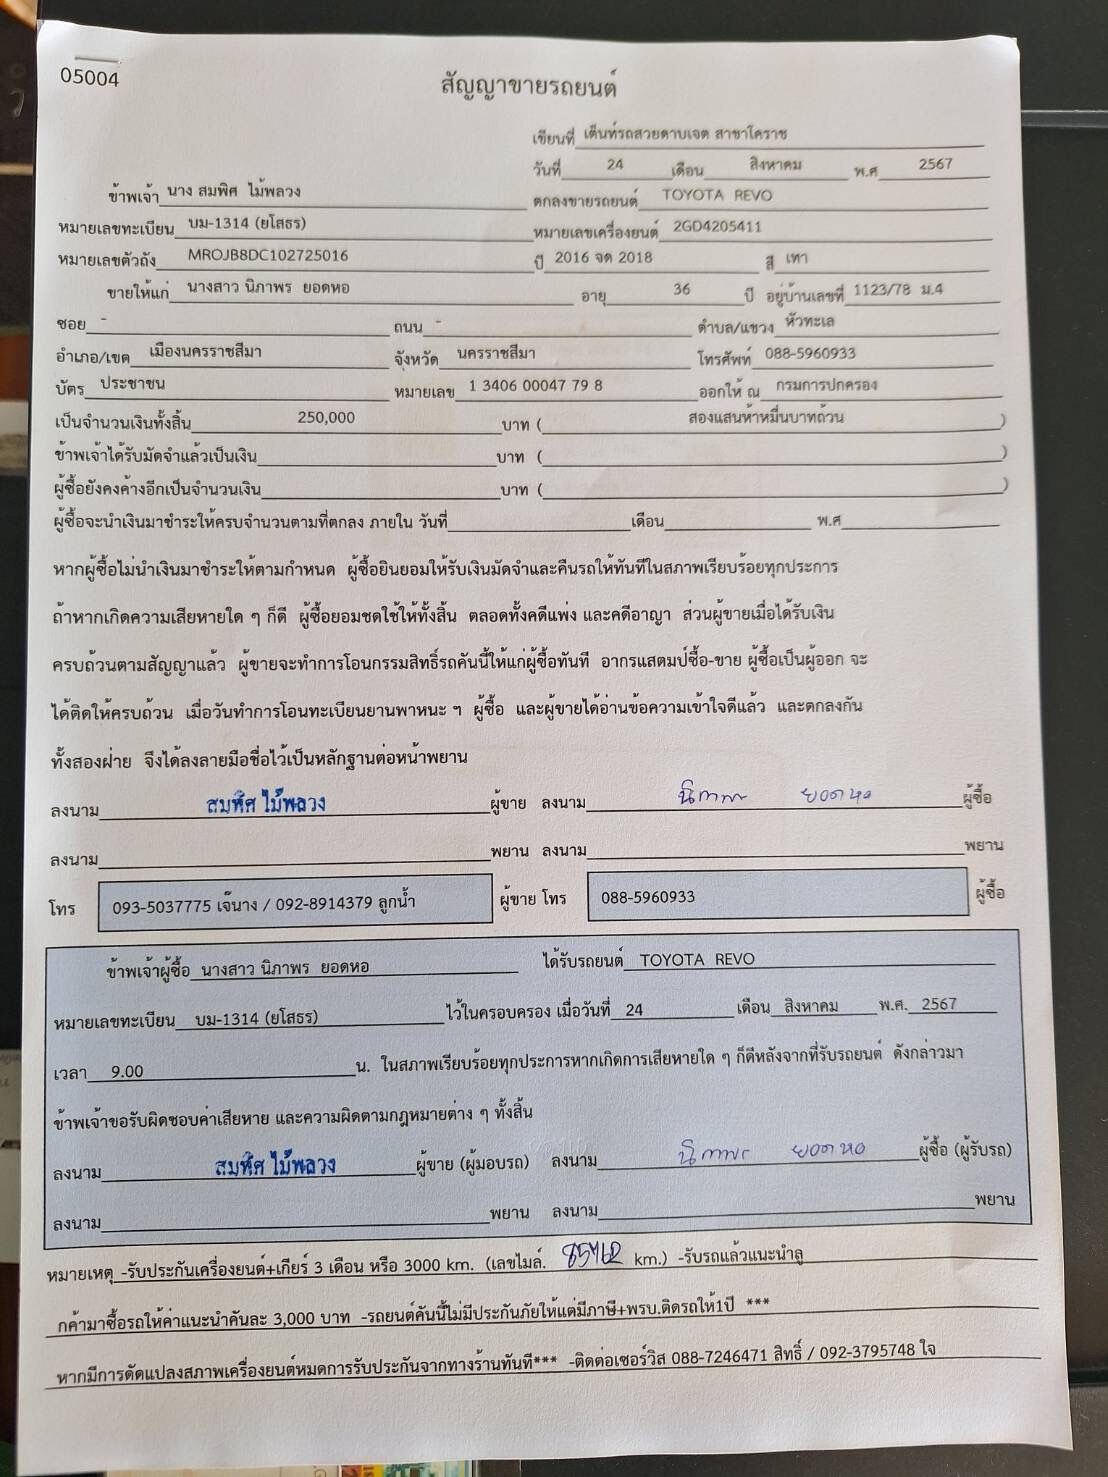 05004
สัญญาขายรถยนต์
เขียนที่ เต็นท์รถสวยดาบเจต สาขาโคราช
วันที่ 24 เดือน สิงหาคม พ.ศ 2567
ข้าพเจ้า นาง สมพิศ ไม้พลวง ตกลงขายรถยนต์ TOYOTA REVO
หมายเลขทะเบียน บม-1314 (ยโสธร) หมายเลขเครื่องยนต์ 2GD4205411
หมายเลขตัวถัง MROJB8DC102725016 ปี 2016 จด 2018 สี เทา
ขายให้แก่ นางสาว นิภาพร ยอดหอ อายุ 36 ปี อยู่บ้านเลขที่ 1123/78 ม.4
ซอย - ถนน - ตำบล/แขวง หัวทะเล
อำเภอ/เขต เมืองนครราชสีมา จังหวัด นครราชสีมา โทรศัพท์ 088-5960933
บัตร ประชาชน หมายเลข 1 3406 00047 79 8 ออกให้ ณ กรมการปกครอง
เป็นจำนวนเงินทั้งสิ้น 250,000 บาท ( สองแสนห้าหมื่นบาทถ้วน )
ข้าพเจ้าได้รับมัดจำแล้วเป็นเงิน บาท ( )
ผู้ซื้อยังคงค้างอีกเป็นจำนวนเงิน บาท ( )
ผู้ซื้อจะนำเงินมาชำระให้ครบจำนวนตามที่ตกลง ภายใน วันที่ เดือน พ.ศ
หากผู้ซื้อไม่นำเงินมาชำระให้ตามกำหนด ผู้ซื้อยินยอมให้รับเงินมัดจำและคืนรถให้ทันทีในสภาพเรียบร้อยทุกประการ
ถ้าหากเกิดความเสียหายใด ๆ ก็ดี ผู้ซื้อยอมชดใช้ให้ทั้งสิ้น ตลอดทั้งคดีแพ่ง และคดีอาญา ส่วนผู้ขายเมื่อได้รับเงิน
ครบถ้วนตามสัญญาแล้ว ผู้ขายจะทำการโอนกรรมสิทธิ์รถคันนี้ให้แก่ผู้ซื้อทันที อากรแสตมป์ซื้อ-ขาย ผู้ซื้อเป็นผู้ออก จะ
ได้ติดให้ครบถ้วน เมื่อวันทำการโอนทะเบียนยานพาหนะ ฯ ผู้ซื้อ และผู้ขายได้อ่านข้อความเข้าใจดีแล้ว และตกลงกัน
ทั้งสองฝ่าย จึงได้ลงลายมือชื่อไว้เป็นหลักฐานต่อหน้าพยาน
ลงนาม สมพิศ ไม้พลวง ผู้ขาย ลงนาม นิภาพร ยอดหอ ผู้ซื้อ
ลงนาม พยาน ลงนาม พยาน
โทร 093-5037775 เจ๊นาง / 092-8914379 ลูกน้ำ ผู้ขาย โทร 088-5960933 ผู้ซื้อ
ข้าพเจ้าผู้ซื้อ นางสาว นิภาพร ยอดหอ ได้รับรถยนต์ TOYOTA REVO
หมายเลขทะเบียน บม-1314 (ยโสธร) ไว้ในครอบครอง เมื่อวันที่ 24 เดือน สิงหาคม พ.ศ. 2567
เวลา 9.00 น. ในสภาพเรียบร้อยทุกประการหากเกิดการเสียหายใด ๆ ก็ดีหลังจากที่รับรถยนต์ ดังกล่าวมา
ข้าพเจ้าขอรับผิดชอบค่าเสียหาย และความผิดตามกฎหมายต่าง ๆ ทั้งสิ้น
ลงนาม สมพิศ ไม้พลวง ผู้ขาย (ผู้มอบรถ) ลงนาม นิภาพร ยอดหอ ผู้ซื้อ (ผู้รับรถ)
ลงนาม พยาน ลงนาม พยาน
หมายเหตุ -รับประกันเครื่องยนต์+เกียร์ 3 เดือน หรือ 3000 km. (เลขไมล์. 85762 km.) -รับรถแล้วแนะนำลู
กค้ามาซื้อรถให้ค่าแนะนำคันละ 3,000 บาท -รถยนต์คันนี้ไม่มีประกันภัยให้แต่มีภาษี+พรบ.ติดรถให้1ปี ***
หากมีการดัดแปลงสภาพเครื่องยนต์หมดการรับประกันจากทางร้านทันที*** -ติดต่อเซอร์วิส 088-7246471 สิทธิ์ / 092-3795748 ใจ